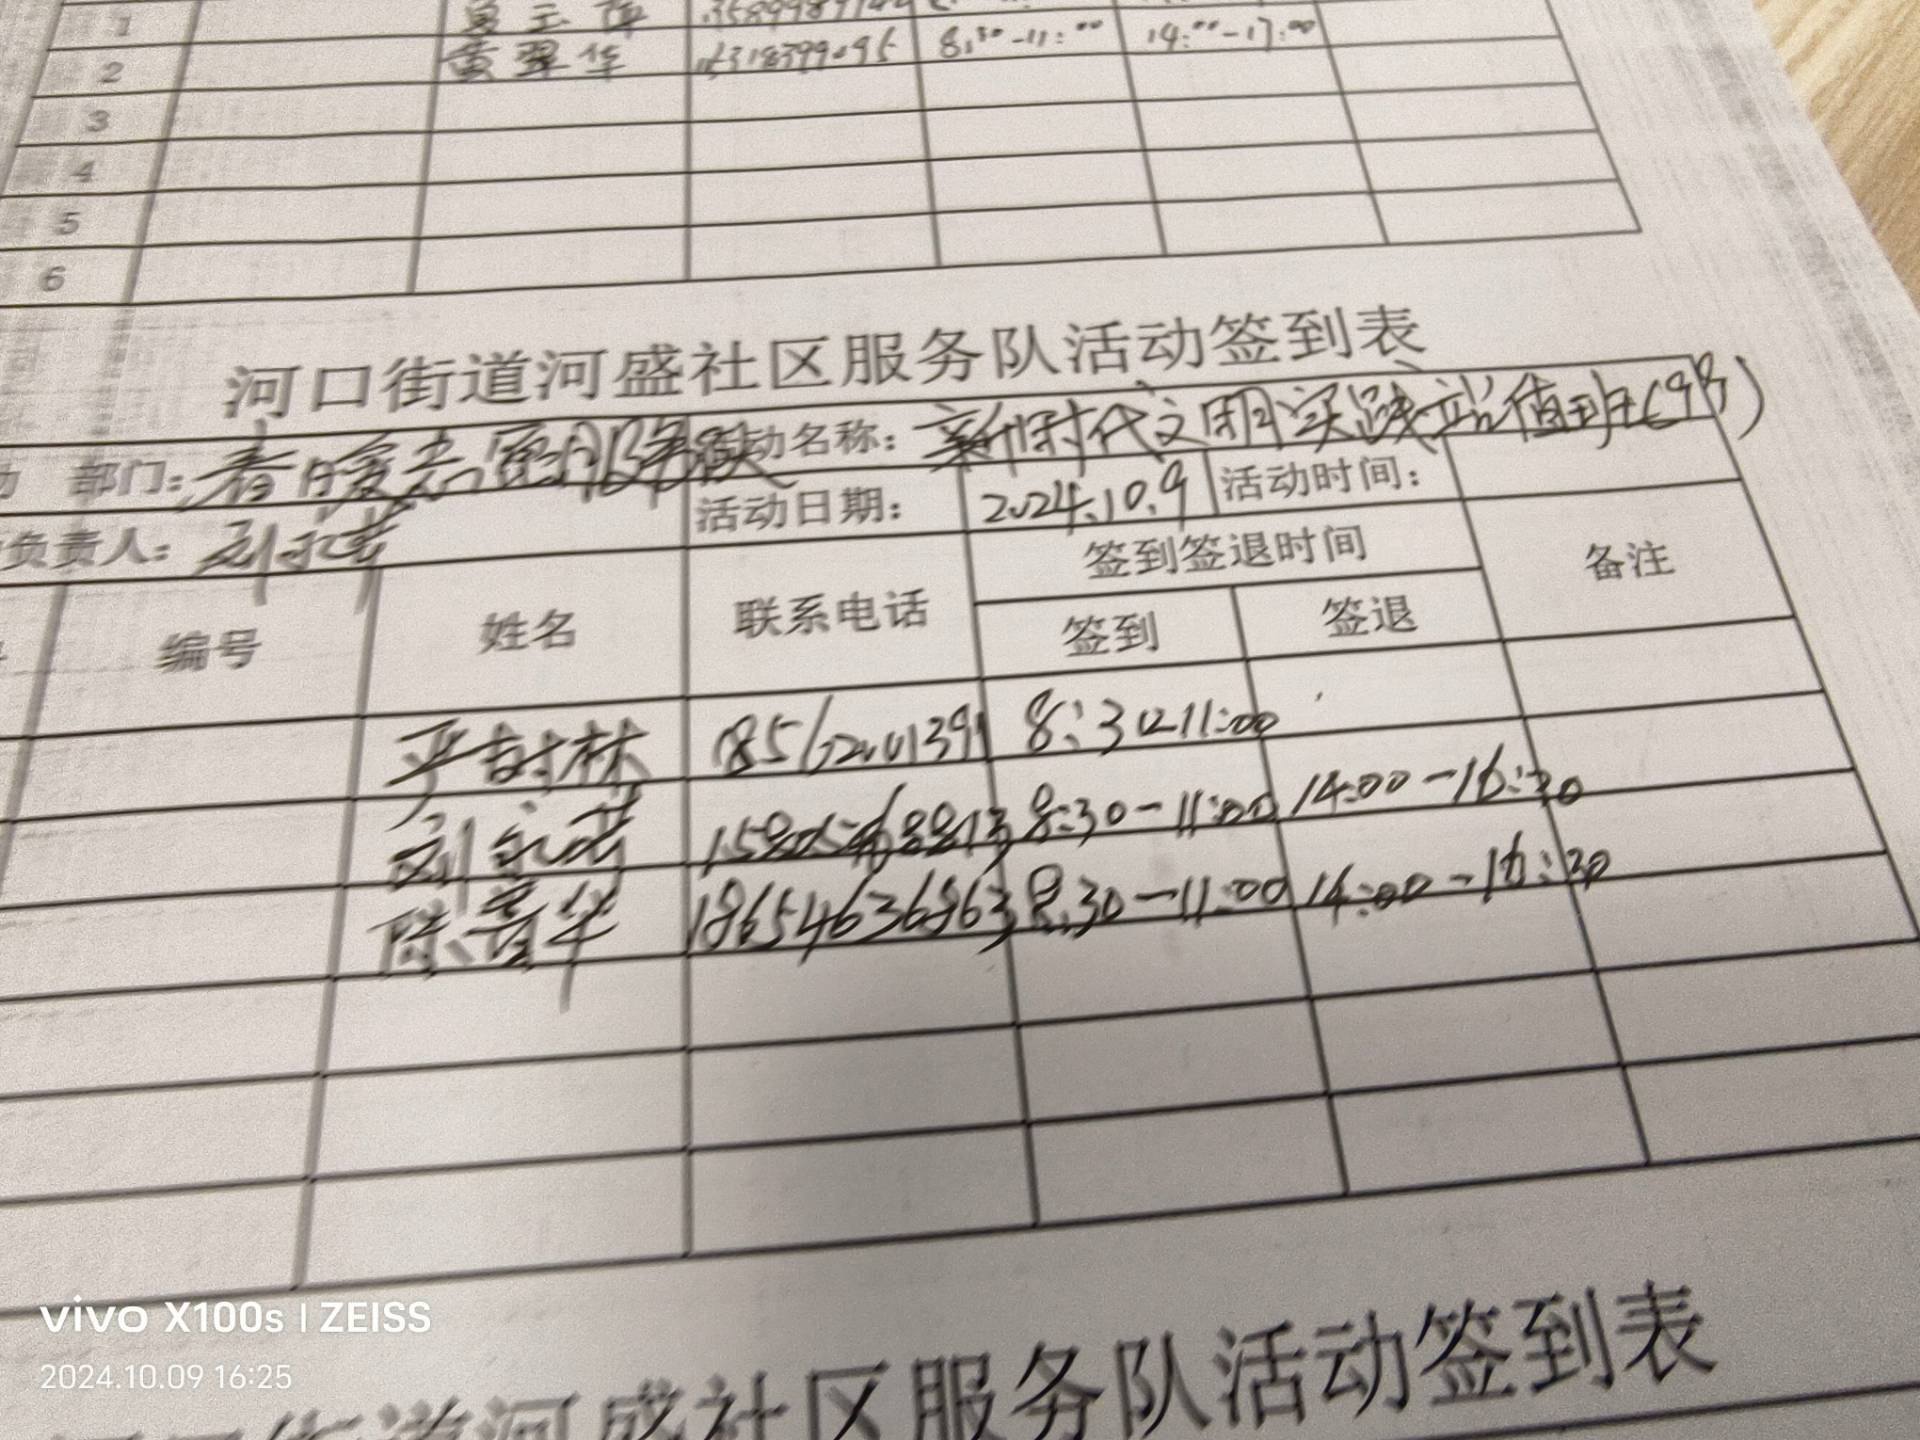 1
2 黄翠华 15318399095 8:30-11:00 14:00-17:00
3
4
5
6
河口街道河盛社区服务队活动签到表
动 部门: 春暖志愿服务队 活动名称: 新时代文明实践站值班(9号)
负责人: 刘永芸 活动日期: 2024.10.9 活动时间:
编号 姓名 联系电话 签到签退时间 备注
签到 签退
严树林 8:30-11:00
刘永芸 8:30-11:00 14:00-16:30
陈春华 18654636863 8:30-11:00 14:00-16:30
vivo X100s | ZEISS
2024.10.09 16:25
河口街道河盛社区服务队活动签到表